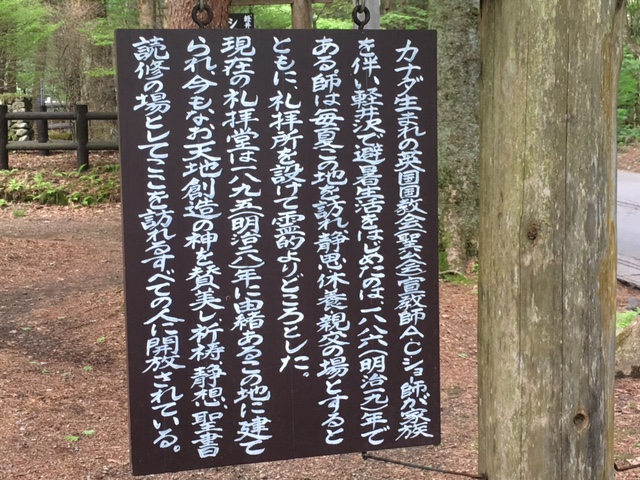 カナダ生まれの英国国教会(聖公会)宣教師A・Cショー師が家族
を伴い、軽井沢で避暑生活をはじめたのは、一八八六(明治一九)年で
ある。師は毎夏この地を訪れ、静思、休養、親交の場とすると
ともに、礼拝所を設けて霊的よりどころとした。
現在の礼拝堂は一八九五(明治二八)年に由緒あるこの地に建て
られ、今もなお天地創造の神を賛美し、祈祷、静想、聖書
読修の場としてここを訪れるすべての人に開放されている。